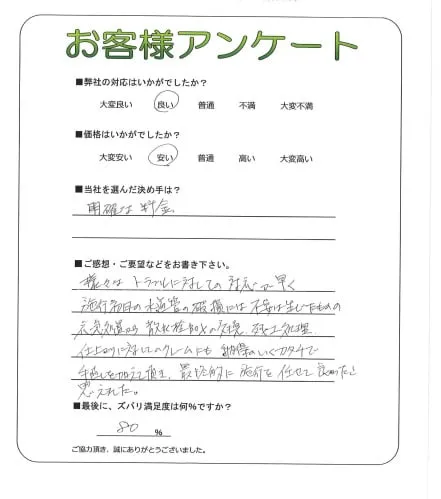 お客様アンケート
■弊社の対応はいかがでしたか?
大変良い 良い 普通 不満 大変不満
■価格はいかがでしたか?
大変安い 安い 普通 高い 大変高い
■当社を選んだ決め手は?
明確な料金
■ご感想・ご要望などをお書き下さい。
様々なトラブルに対しての対応が早く
施行初日の水道管の破損には不安は生じたものの
応急処置から散水栓 の 処理
仕上りに対してのクレームにも納得のいくカタチで
手直しを加えて頂き、最終的に施行を任せて良かったと
思えれた。
■最後に、ズバリ満足度は何%ですか?
80 %
ご協力頂き、誠にありがとうございました。